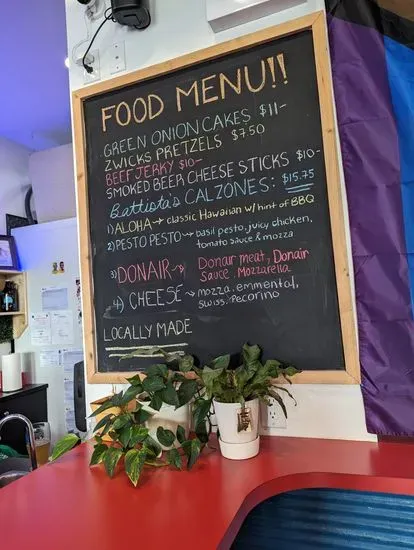 FOOD MENU!!
GREEN ONION CAKES $11-
ZWICKS PRETZELS $7.50
BEEF JERKY $10-
SMOKED BEER CHEESE STICKS $10-
Battista's CALZONES: $15.75
1) ALOHA → classic Hawaiian w/ hint of BBQ
2) PESTO PESTO → basil pesto, juicy chicken,
tomato sauce & mozza
3) DONAIR → Donair meat, Donair
Sauce, Mozzarella
4) CHEESE → mozza, emmental,
swiss, pecorino
LOCALLY MADE